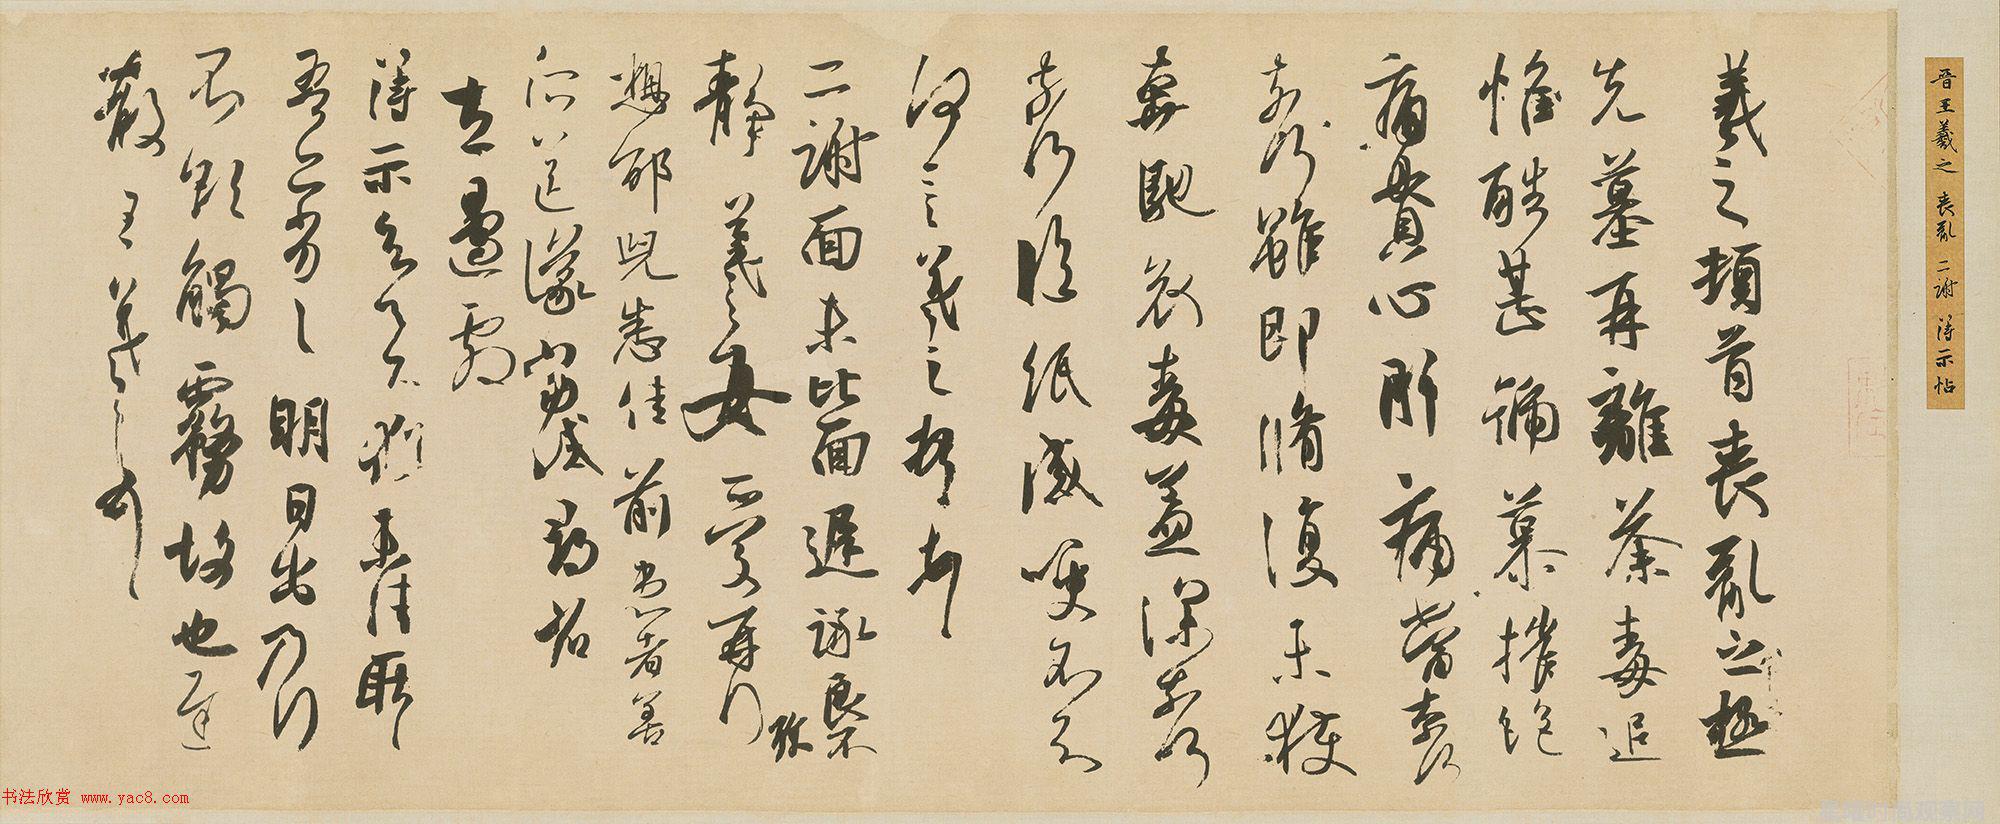 晋王羲之 喪亂 二謝 得示帖
羲之頓首喪亂之極
先墓再離荼毒追
惟酷甚號慕摧絕
痛貫心肝痛當柰何
柰何雖即脩復未獲
奔馳哀毒益深柰何
柰何臨紙感哽不知
何言羲之頓首頓首
二謝面未比面遲詠良不
靜羲之女愛再拜
想邵兒悉佳前患者善
所送議當試尋省
左邊劇
得示知足下猶未佳耿耿
吾亦劣劣明日出乃行
不欲觸霧故也遲
散王羲之頓首
书法欣赏 www.yac8.com